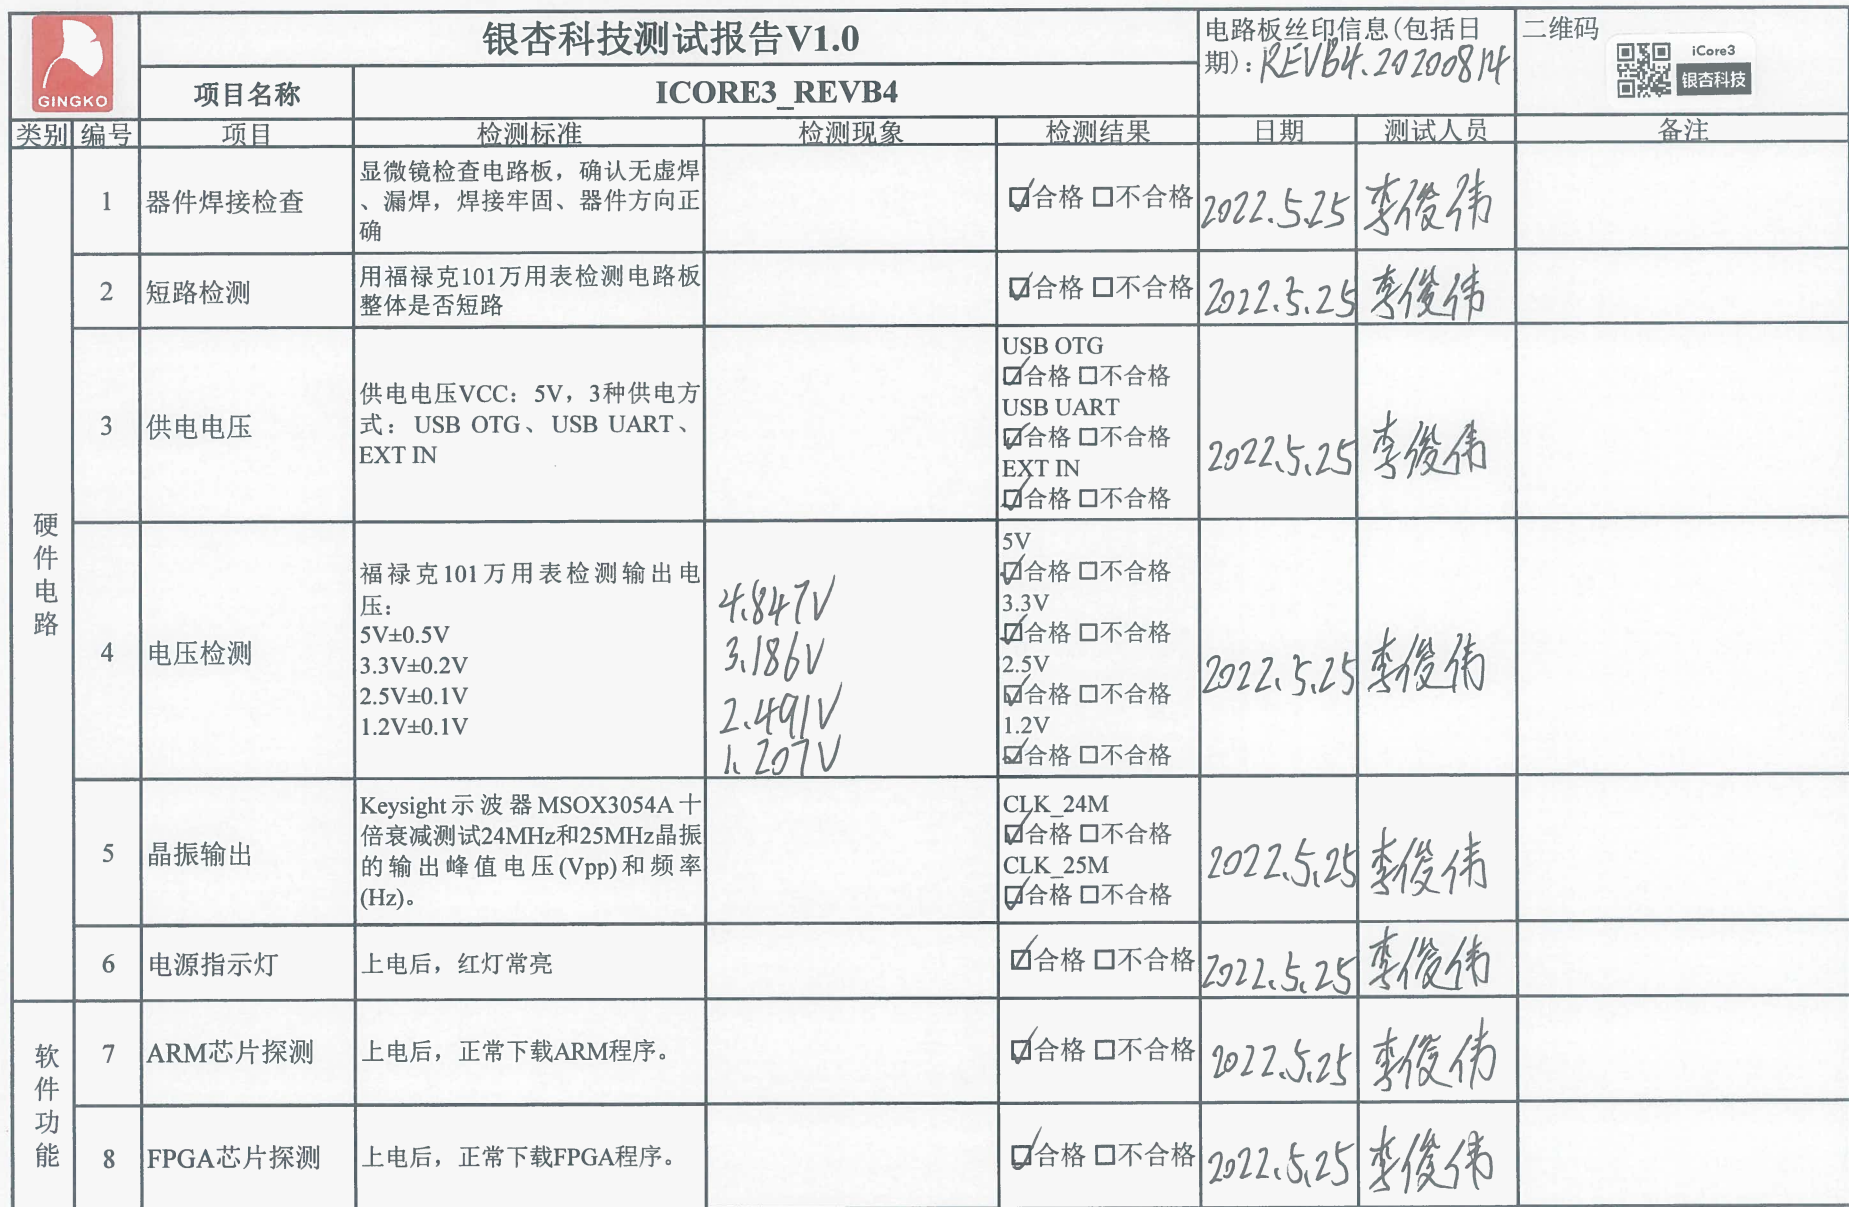 GINGKO
银杏科技测试报告V1.0
电路板丝印信息(包括日
期):REVB4.20200814
二维码
iCore3
银杏科技
项目名称
ICORE3_REVB4
类别 编号 项目 检测标准 检测现象 检测结果 日期 测试人员 备注
硬件电路
1 器件焊接检查
显微镜检查电路板，确认无虚焊
、漏焊，焊接牢固、器件方向正
确
合格 不合格
2022.5.25 李俊伟
2 短路检测
用福禄克101万用表检测电路板
整体是否短路
合格 不合格
2022.5.25 李俊伟
3 供电电压
供电电压VCC：5V，3种供电方
式：USB OTG、USB UART、
EXT IN
USB OTG
合格 不合格
USB UART
合格 不合格
EXT IN
合格 不合格
2022.5.25 李俊伟
4 电压检测
福禄克101万用表检测输出电
压：
5V±0.5V
3.3V±0.2V
2.5V±0.1V
1.2V±0.1V
4.847V
3.186V
2.491V
1.207V
5V
合格 不合格
3.3V
合格 不合格
2.5V
合格 不合格
1.2V
合格 不合格
2022.5.25 李俊伟
5 晶振输出
Keysight示波器MSOX3054A十
倍衰减测试24MHz和25MHz晶振
的输出峰值电压(Vpp)和频率
(Hz)。
CLK_24M
合格 不合格
CLK_25M
合格 不合格
2022.5.25 李俊伟
6 电源指示灯
上电后，红灯常亮
合格 不合格
2022.5.25 李俊伟
软件功能
7 ARM芯片探测
上电后，正常下载ARM程序。
合格 不合格
2022.5.25 李俊伟
8 FPGA芯片探测
上电后，正常下载FPGA程序。
合格 不合格
2022.5.25 李俊伟